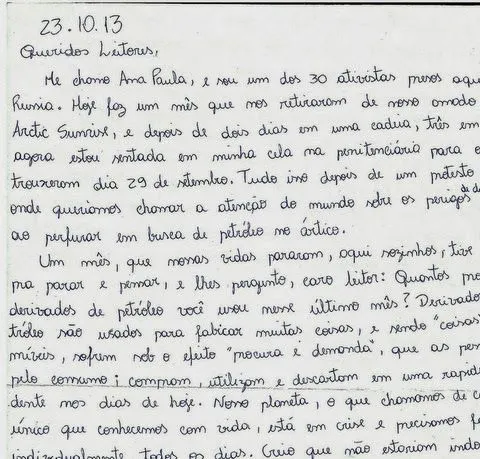 23.10.13
Queridos Leitores,
Me chamo Ana Paula, e sou um dos 30 ativistas presos aqu
Russia. Hoje faz um mês que nos retiraram de nosso amado
Arctic Sunrise, e depois de dois dias em uma cadeia, três em
agora estou sentada em minha cela na penitenciária para o
trouxeram dia 29 de setembro. Tudo isso depois de um protesto
onde queriamos chamar a atenção do mundo sobre os perigos de de
ao perfurar em busca de petróleo no ártico.
Um mês, que nossas vidas pararam, aqui sozinhos, tive
pra parar e pensar, e lhes pergunto, caro leitor: Quantos pro
derivados de petróleo você usou nesse último mês? Derivado
tróleo são usados para fabicar muitas coisas, e sendo "coisas"
míveis, sofrem sob o efeito "procura e demanda", que as pes
pelo consumo; compram, utilizam e descartam em uma rapide
dente nos dias de hoje. Nosso planeta, o que chamamos de c
único que conhecemos com vida, está em crise e precisamos f
individualmente todos os dias. Creio que não estariam indo